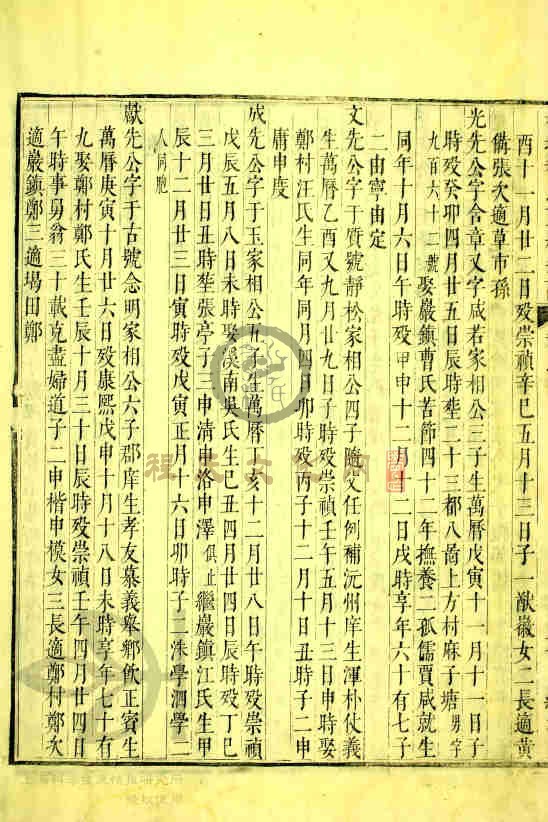 酉十一月廿二日歿崇禎辛巳五月十三日子一猷徽女二長適黃
備張次適草市孫
光先公字含章又字咸若家相公三子生萬曆戊寅十一月十一日子
時歿癸卯四月廿五日辰時塟二十三都八啚上方村麻子塘男字
九百六十二號娶巖鎮曹氏苦節四十二年撫養二孤儒賈咸就生
同年十月六日午時歿甲申十二月十二日戌時享年六十有七子
二由寧由定
文先公字于質號靜松家相公四子隨父任例補沅州庠生渾朴仗義
生萬曆乙酉又九月廿九日子時歿崇禎壬午五月十三日申時娶
鄭村汪氏生同年同月四日卯時歿丙子十二月十日丑時子二申
庸申度
成先公字于玉家相公五子生萬曆丁亥十二月廿八日午時歿崇禎
戊辰五月八日未時娶溪南吳氏生己丑四月廿四日辰時歿丁巳
三月廿日丑時塟張亭子三申清申洛申澤俱止繼巖鎮江氏生甲
辰十二月廿三日寅時歿戊寅正月十六日卯時子二洙學泗學二
人同胞
獻先公字于古號念明家相公六子郡庠生孝友慕義舉鄉飲正賓生
萬曆庚寅十月廿六日歿康熙戊申十月十八日未時享年七十有
九娶鄭村鄭氏生壬辰十月三十日辰時歿崇禎壬午四月廿四日
午時事舅翁三十載克盡婦道子二申楷申模女三長適鄭村鄭次
適巖鎮鄭三適塲田鄭